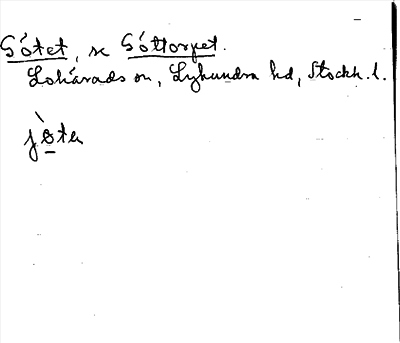 Götet, se Göttorpet.
Lohärads sn, Lyhundra hd, Stockh. l.
jö̀te